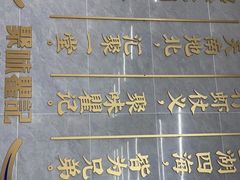 聚味 記
天南地北，汇聚一堂。
虾仗义，聚味 记。
湖四海，皆为兄弟。